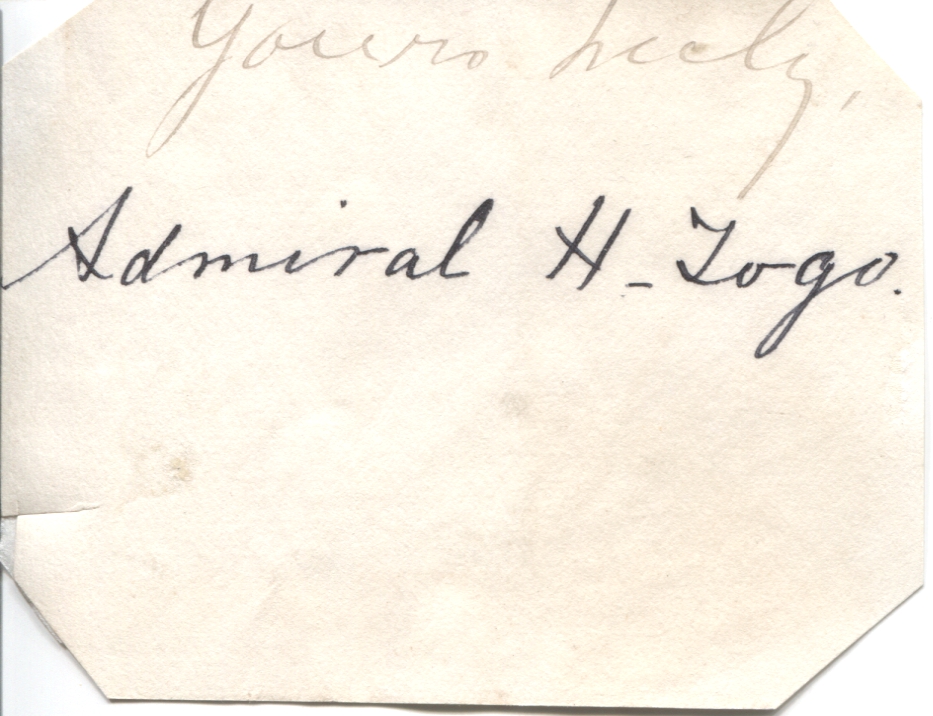 Yours truly,
Admiral H-Togo.